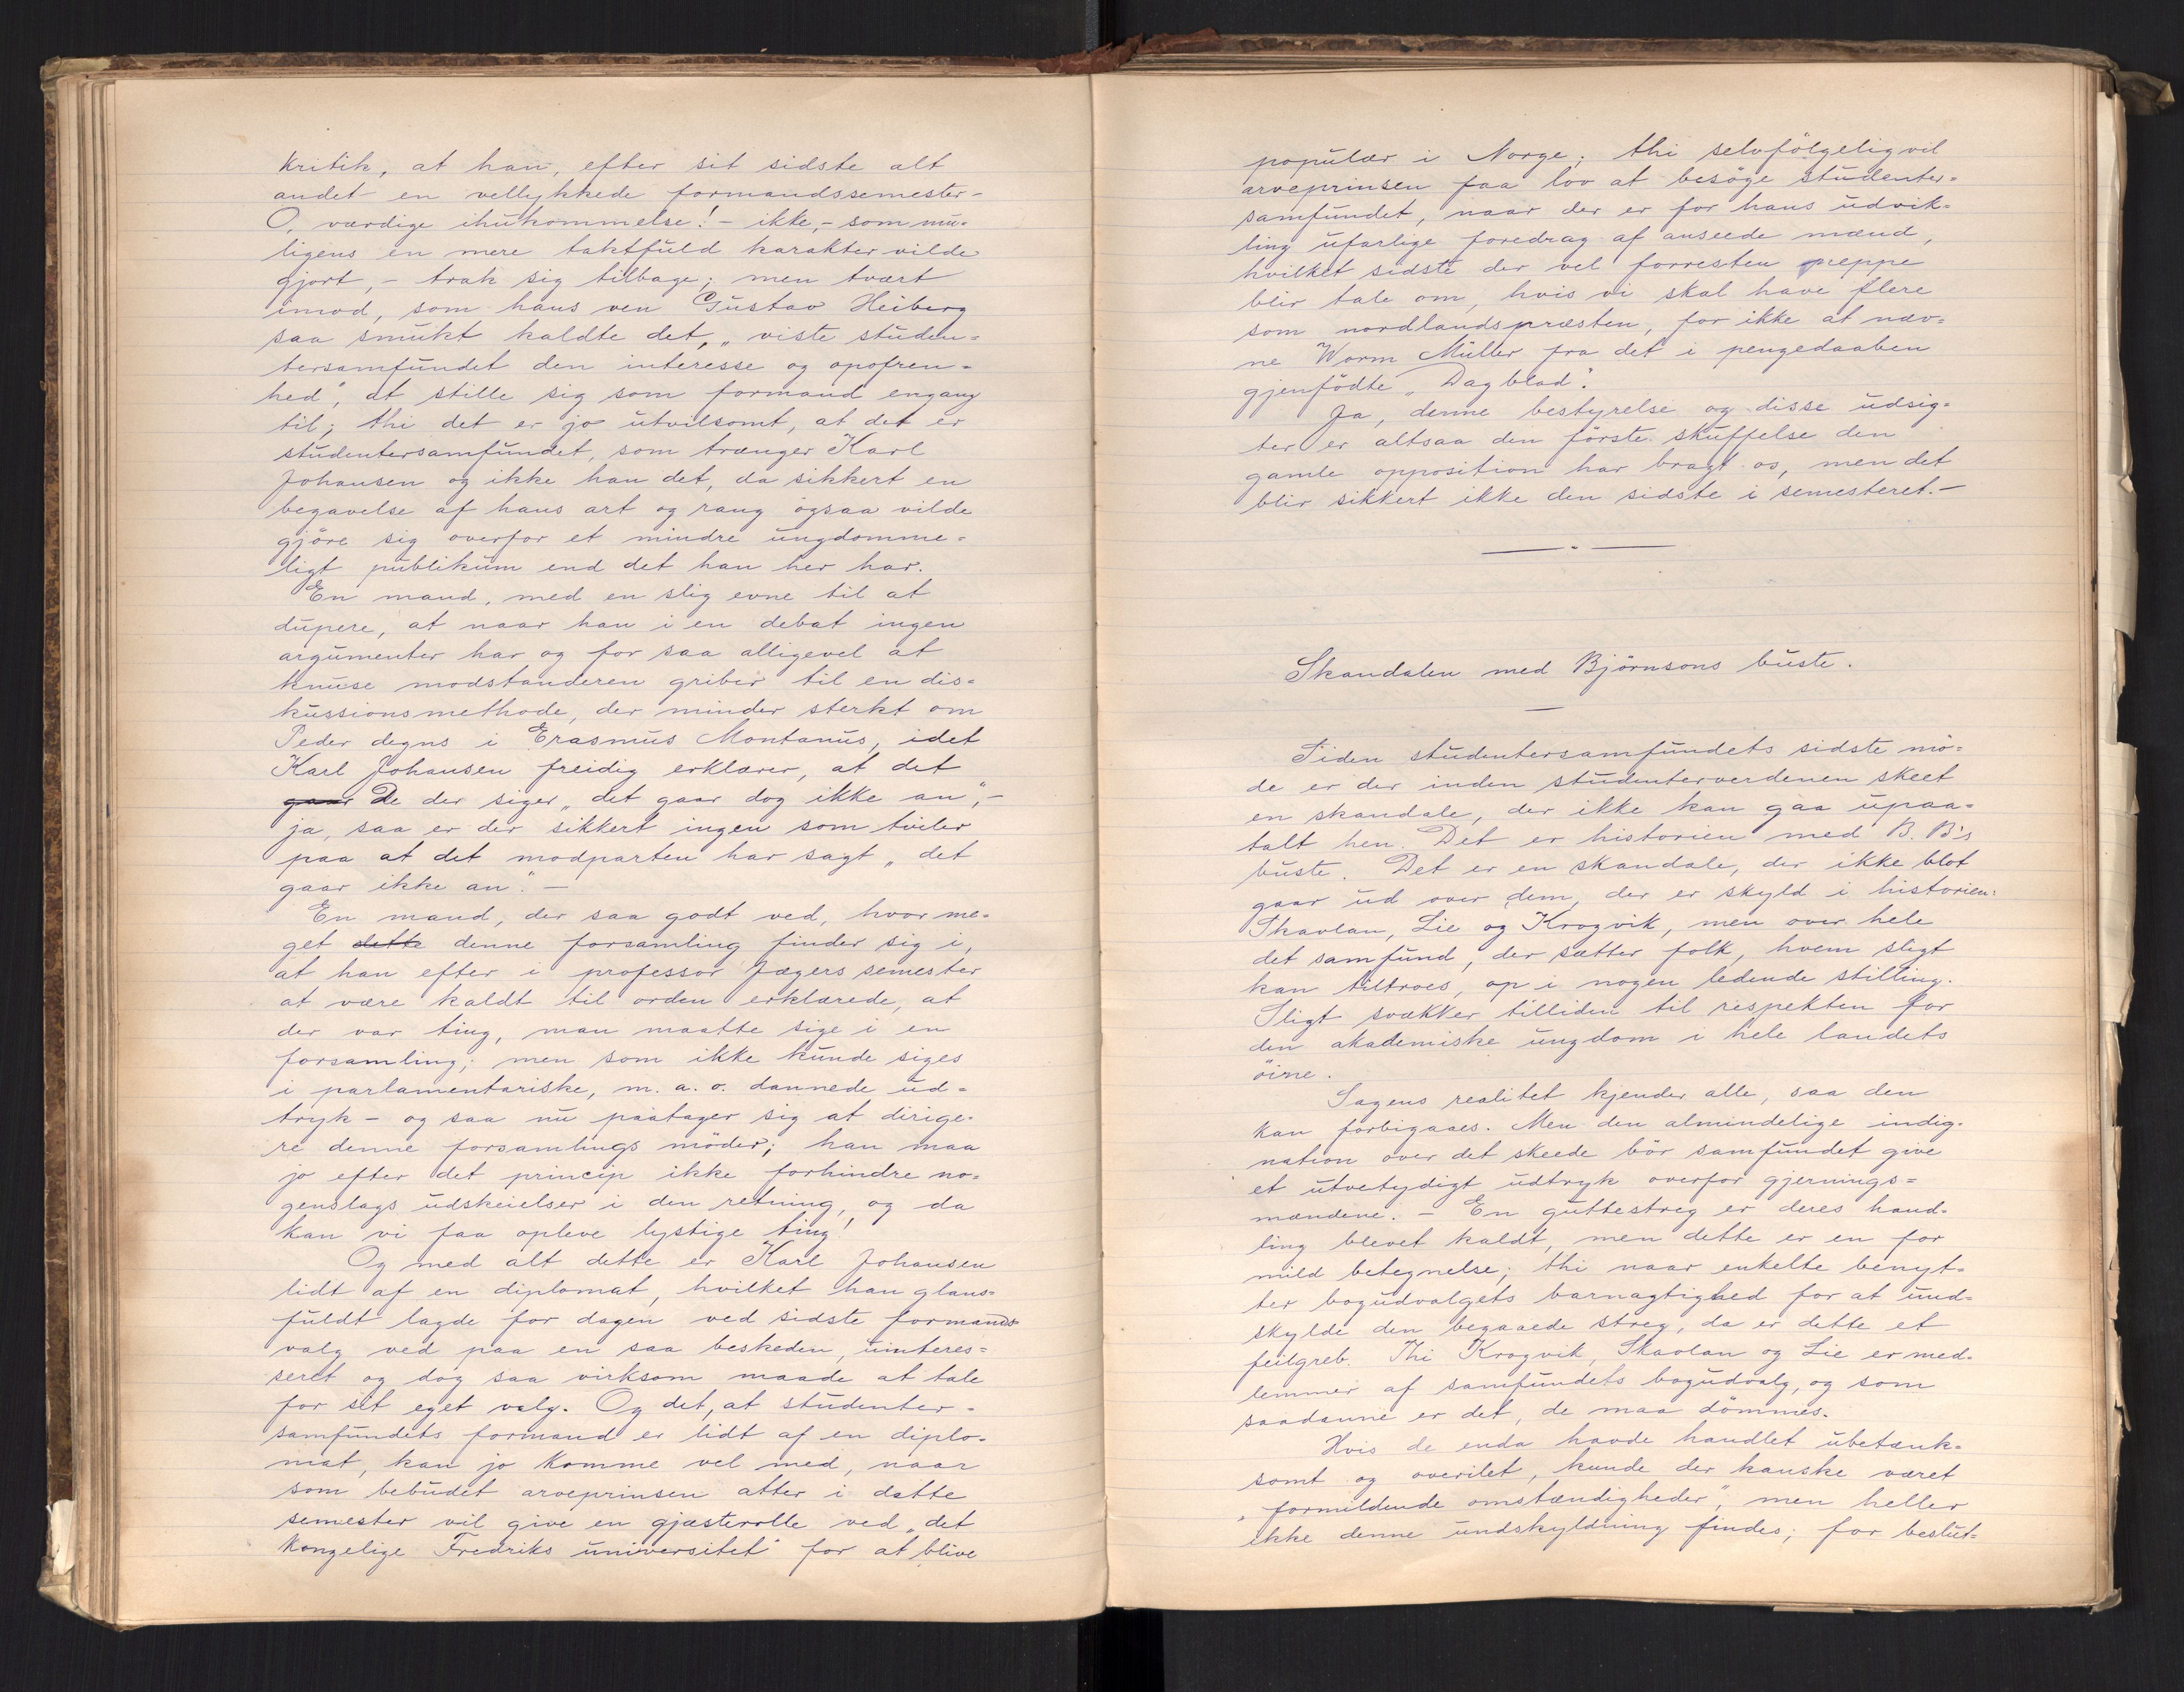 kritik, at han, efter sit sidste alt
andet en vellykkede formandssemester -
O, værdige ihukommelse! - ikke, - som mu-
ligens en mere taktfuld karakter vilde
gjort, - trak sig tilbage; men tvært
imod, som hans ven Gustav Heiberg
saa smukt kaldte det, „viste studen=
tersamfundet den interesse og opofren=
hed", at stille sig som formand engang
til; thi det er jo utvilsomt, at det er
studentersamfundet, som trænger Karl
Johansen og ikke han det, da sikkert en
begavelse af hans art og rang ogsaa vilde
gjöre sig overfor et mindre ungdomme=
ligt publikum end det han her har.
En mand, med en slig evne til at
dupere, at naar han i en debat ingen
argumenter har og for saa alligevel at
knuse modstanderen griber til en dis=
kussionsmethode, der minder sterkt om
Peder degns i Erasmus Montanus, idet
Karl Johansen freidig erklærer, at det
gaar De der siger „det gaar dog ikke an", -
ja, saa er der sikkert ingen som tviler
paa at det modparten har sagt „det
gaar ikke an". -
En mand, der saa godt ved, hvor me=
get dette denne forsamling finder sig i,
at han efter i professor Jægers semester
at være kaldt til orden erklærede, at
der var ting, man maatte sige i en
forsamling; men som ikke kunde siges
i parlamentariske, m. a. o. dannede ud=
tryk - og saa nu paatager sig at dirige-
re denne forsamlings möder; han maa
jo efter det princip ikke forhindre no=
genslags udskeielser i den retning, og da
kan vi faa opleve lystige ting!
Og med alt dette er Karl Johansen
lidt af en diplomat, hvilket han glans=
fuldt lagde for dagen ved sidste formands
valg ved paa en saa beskeden, uinteres=
seret og dog saa virksom maade at tale
for sit eget valg. Og det, at studenter=
samfundets formand er lidt af en diplo-
mat, kan jo komme vel med, naar
som bebudet arveprinsen atter i dette
semester vil give en gjæsterolle ved „det
kongelige Fredriks universitet" for at blive
populær i Norge; thi selvfölgelig vil
arveprinsen faa lov at besöge studenter=
samfundet, naar der er for hans udvik=
ling ufarlige foredrag af anseede mænd,
hvilket sidste der vel forresten neppe
blir tale om, hvis vi skal have flere
som nordlandspræsten, for ikke at næv=
ne Worm Müller fra det i pengedaaben
gjenfödte „Dagblad".
Ja, denne bestyrelse og disse udsig=
ter er altsaa den förste skuffelse den
gamle opposition har bragt os, men det
blir sikkert ikke den sidste i semesteret. -
Skandalen med Björnsons buste.
Siden studentersamfundets sidste mö=
de er der inden studenterverdenen skeet
en skandale, der ikke kan gaa upaa=
talt hen. Det er historien med B. B's
buste. Det er en skandale, der ikke blot
gaar ud over dem, der er skyld i historien:
Skavlan, Lie og Krogvik, men over hele
det samfund, der sætter folk, hvem sligt
kan tiltroes, op i nogen ledende stilling.
Sligt svækker tilliden til respekten for
den akademiske ungdom i hele landets
öine.
Sagens realitet kjender alle, saa den
kan forbigaaes. Men den almindelige indig-
nation over det skeede bör samfundet give
et utvetydigt udtryk overfor gjernings=
mændene. - En guttestreg er deres hand-
ling blevet kaldt, men dette er en for
mild betegnelse; thi naar enkelte benyt=
ter bogudvalgets barnagtighed for at und=
skylde den begaaede streg, da er dette et
feilgreb. Thi Krogvik, Skavlan og Lie er med-
lemmer af samfundets bogudvalg, og som
saadanne er det, de maa dömmes.
Hvis de enda havde handlet ubetænk=
somt og overilet, kunde der kanske været
„formildende omstændigheder", men heller
ikke denne undskyldning findes; for beslut=